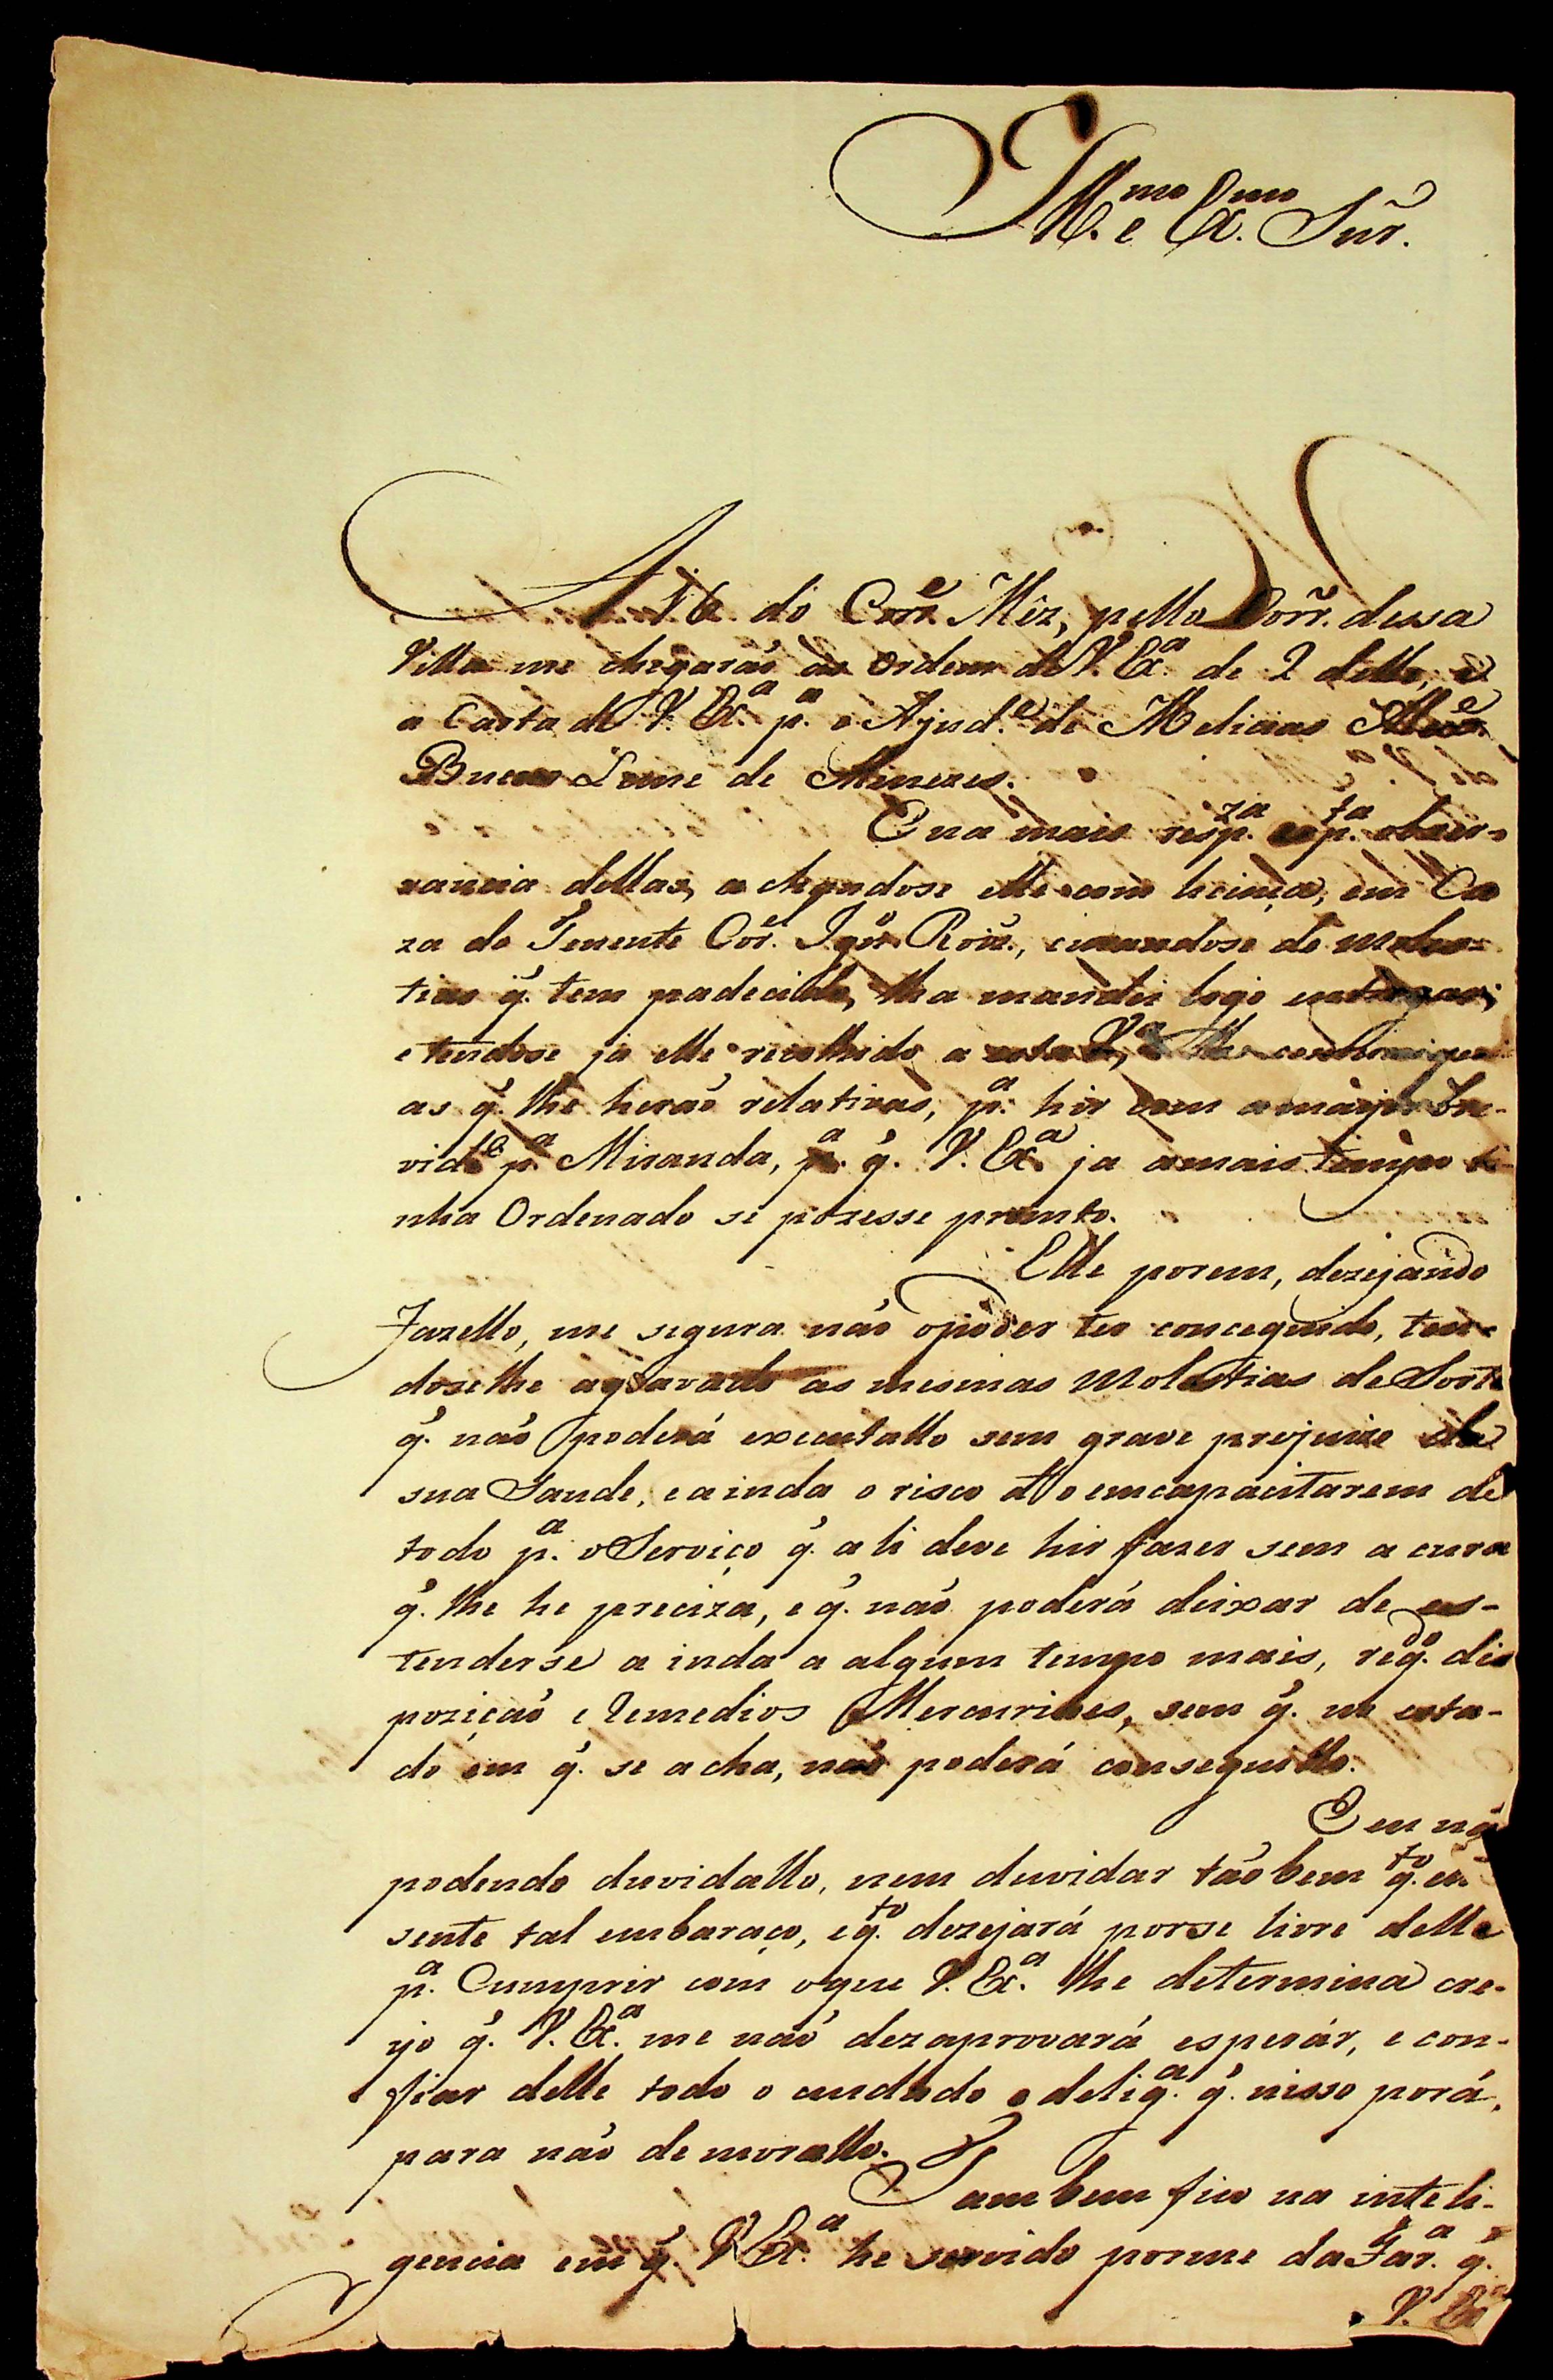 Ill.mo e Ex.mo Snr.
A 16 do Corr.e Mêz, pello Corr. dessa
Villa me chegaraõ as Ordem de V. Ex.a de 2 delle, e
a Carta de V. Ex.a p.a o Ajud.e de Melicias
Bueno Leme de Menezes.
E na mais resp.za obser-
vancia dellas, achandose elle com licença, em Ca
za do Tenente Cor.el Ign.o Roiz., curandose de moles-
tias q̃. tem padecido, lha mandei logo entregar;
e tendose ja elle recolhido a esta V.a, lhe
as q̃. lhe heraõ relativas, p.a hir com a maijor bre-
vid.e p.a Miranda, p.a q̃. V. Ex.a ja a mais tempo ti-
nha Ordenado se pozesse promto.
Elle porem, dezejando
Fazello, me segura naõ opoder ter conceguido, ten-
doselhe agravado as mesmas Molestias de Sorte
q̃. naõ poderá executallo sem grave prejuizo de
sua Saude, e ainda o risco d'o emcapacitarem de
todo p.a o Serviço q̃. ali deve hir fazer sem a cura
q̃. lhe he preciza, e q̃. naõ poderá deixar de es-
tenderse a inda a algum tempo mais, req.do dis
poziçaõ e Remedios Mercuriaes, sem q̃. no esta-
do em q̃. se acha, naõ poderá conseguillo.
E eu naõ
podendo duvidallo, nem duvidar taõbem q.to en
sente tal embaraço, e q.to dezejará porse livre delle
p.a Cumprir com oque V. Ex.a lhe determina cre-
yo q̃. V. Ex.a me naõ dezaprovará esperár, e con-
fiar delle todo o cuidado e delig.a q̃. nisso porá,
para naõ demorallo.
Tambem fico na inteli-
gencia em q̃. V. Ex.a he servido porme da Far.a q̃.
V. Ex.a